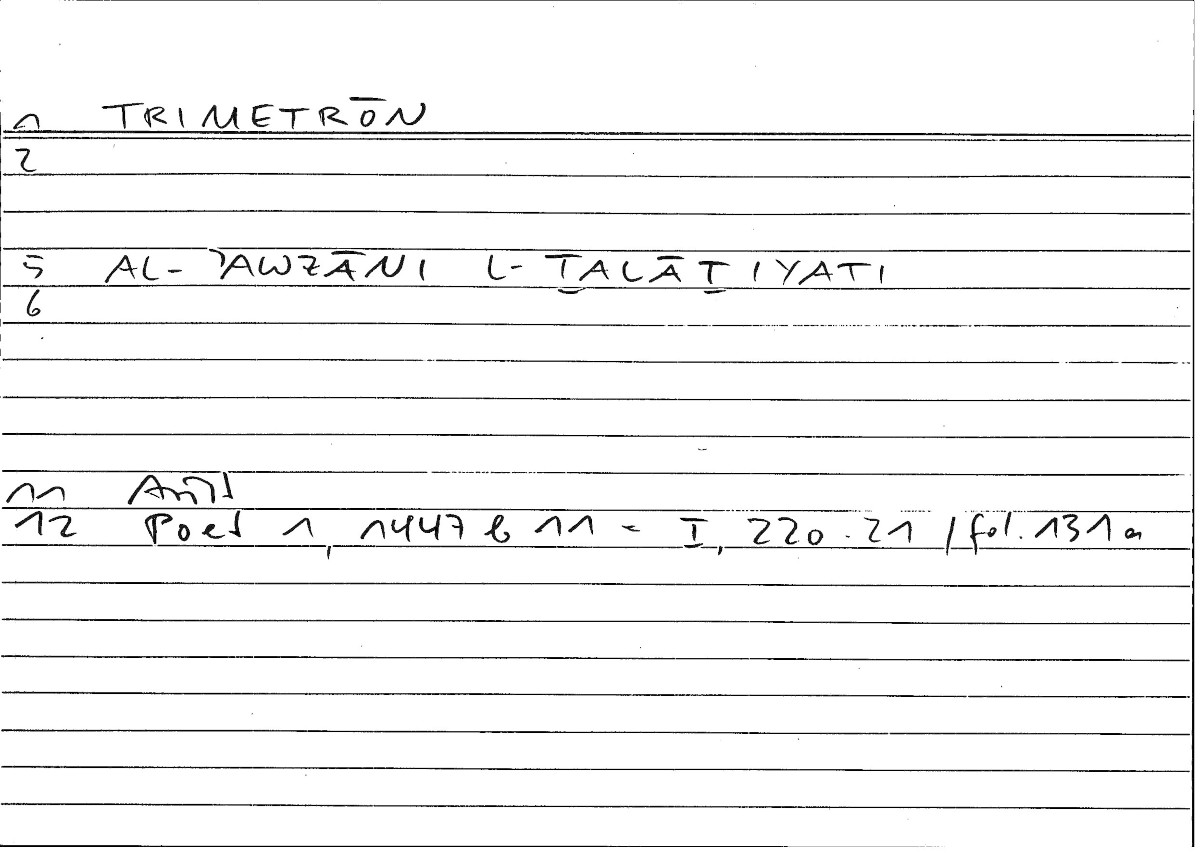 1 TRIMETRŌN
2
5 AL-ʾAWZĀNI L-ṮALĀṮIYATI
6
11 Arist
12 Poet 1, 1447 b 11 = I, 220.21 / fol. 131a